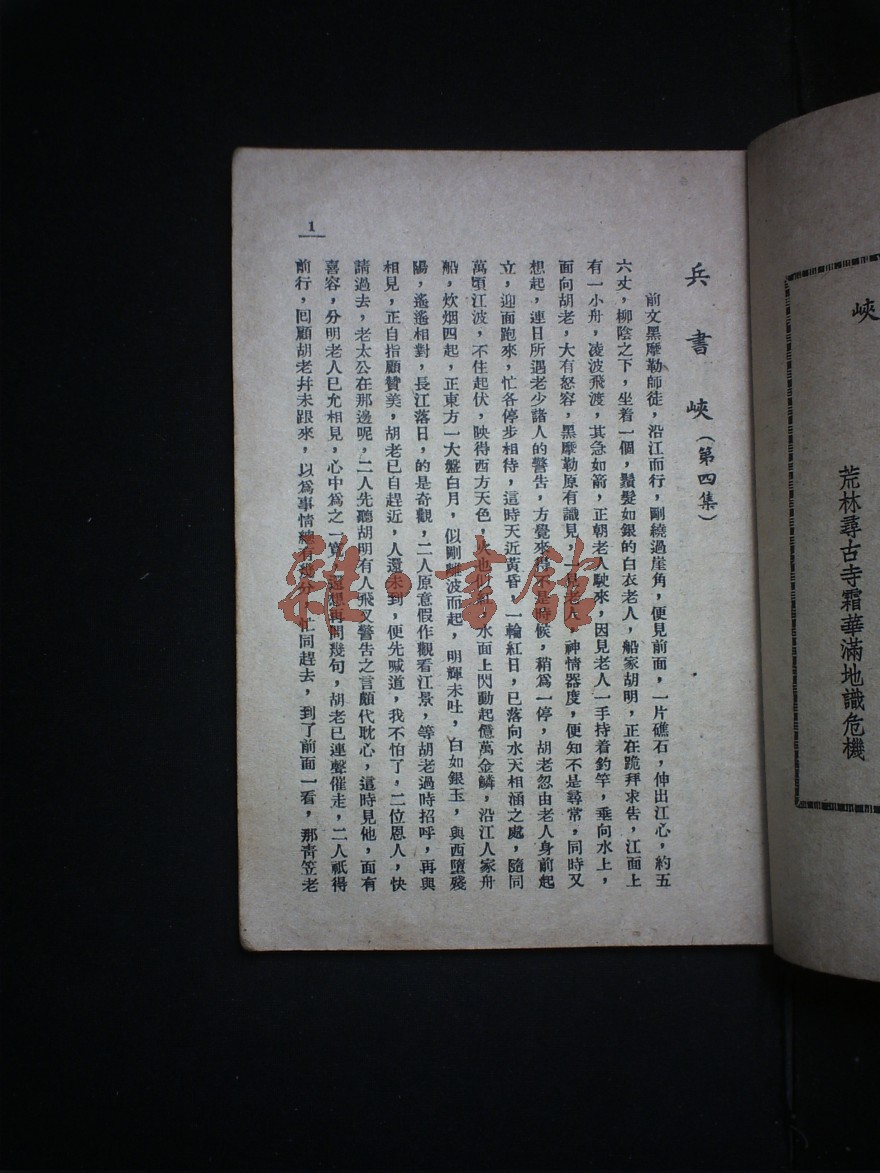 峽
荒林尋古寺霜華滿地識危機
兵書峽（第四集）
前文黑摩勒師徒，沿江而行，剛繞過崖角，便見前面，一片礁石，伸出江心，約五
六丈，柳陰之下，坐着一個，鬚髮如銀的白衣老人，船家胡明，正在跪拜求告，江面上
有一小舟，凌波飛渡，其急如箭，正朝老人駛來，因見老人一手持着釣竿，垂向水上，
面向胡老，大有怒容，黑摩勒原有識見，一見老人，神情器度，便知不是尋常，同時又
想起，連日所遇老少諸人的警告，方覺來得不是時候，稍爲一停，胡老忽由老人身前起
立，迎面跑來，忙各停步相待，這時天近黃昏，一輪紅日，已落向水天相涵之處，隨同
萬頃江波，不住起伏，映得西方天色，火也似紅，水面上閃動起億萬金鱗，沿江人家舟
船，炊烟四起，正東方一大盤白月，似剛離波而起，明輝未吐，白如銀玉，與西墮殘
陽，遙遙相對，長江落日，的是奇觀，二人原意假作觀看江景，等胡老過時招呼，再與
相見，正自指顧贊美，胡老已自趕近，人還未到，便先喊道，我不怕了，二位恩人，快
請過去，老太公在那邊呢，二人先聽胡明有人飛叉警告之言頗代耽心，這時見他，面有
喜容，分明老人已允相見，心中爲之一寬，還想再問幾句，胡老已連聲催走，二人祇得
前行，回顧胡老幷未跟來，以爲事情總有幾分，忙同趕去，到了前面一看，那靑笠老
1
雜·書館